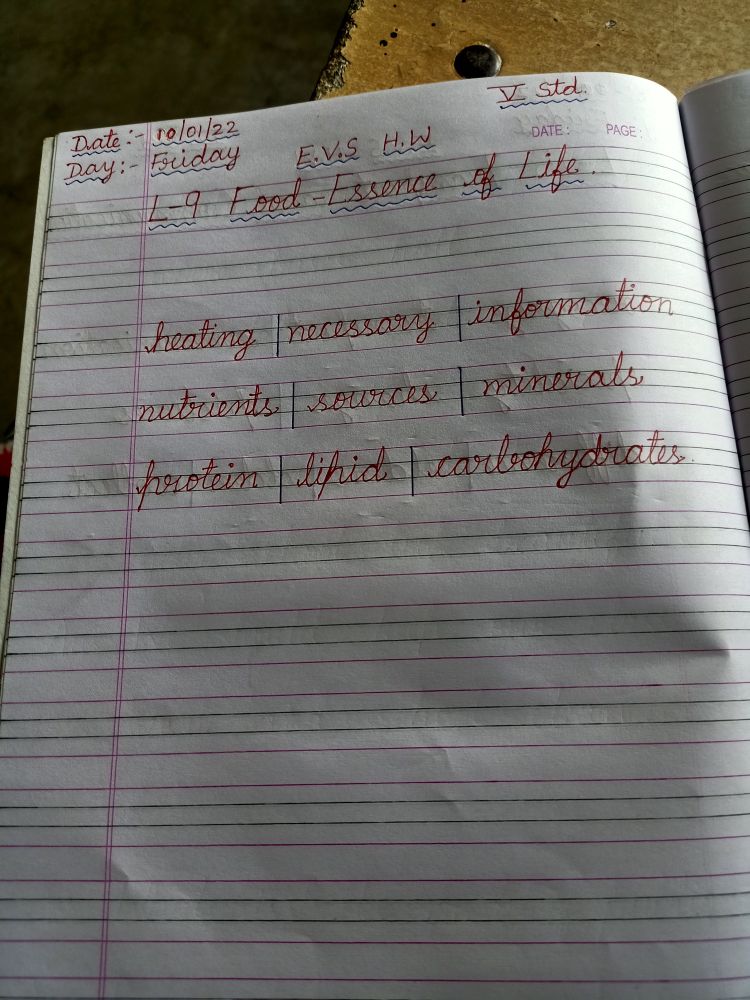 V Std.
Date:- 10/01/22
DATE: PAGE:
Day:- Friday E.V.S H.W
L-9 Food - Essence of Life.
heating | necessary | information
nutrients | sources | minerals
protein | lipid | carbohydrates.